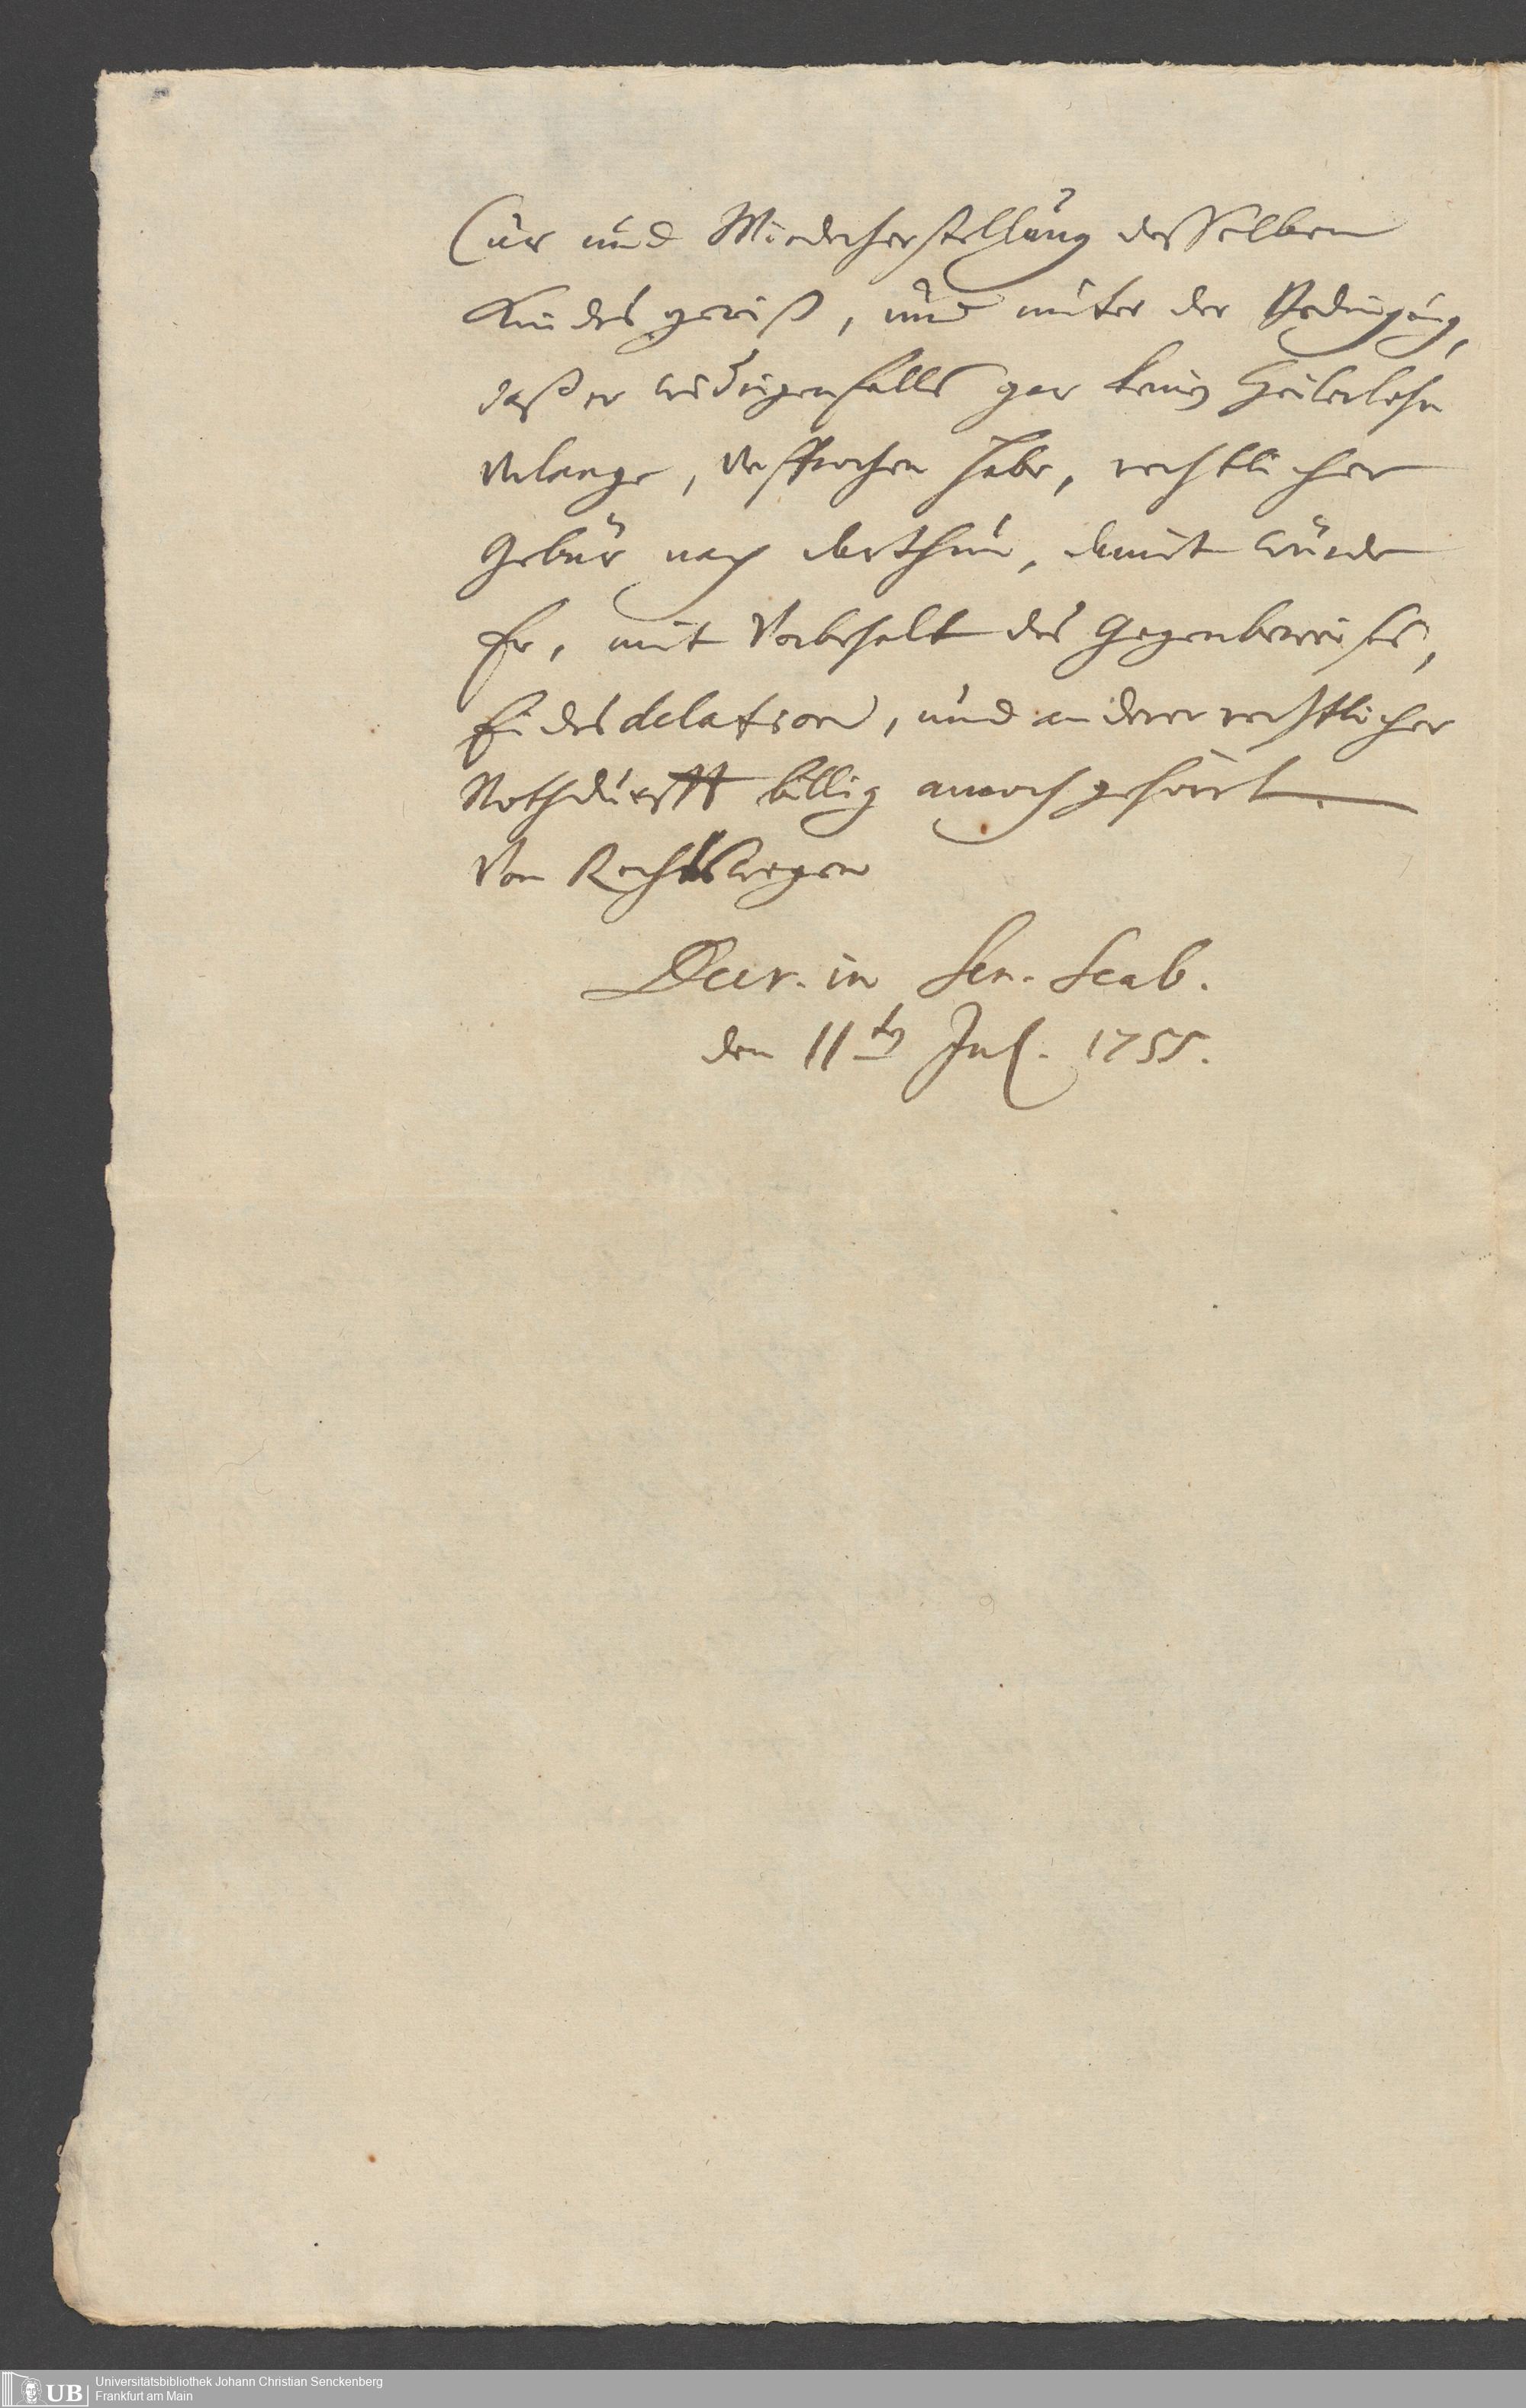 Cur und Wiederherstellung desselben
Kindes gewiß, und unter der Bedingung,
daß er widrigenfalls gar kein Heilerlohn
verlange, versprochen habe, rechtlicher
Gebür nach darthun, damit würde
Er, mit Vorbehalt des Gegenbeweises,
Eides delation, und anderer rechtlicher
Nothdurfft billig annoch gehört.
Von Rechts wegen
Decr. in Sen. Scab.
den 11ten Jul. 1755.
UB Universitätsbibliothek Johann Christian Senckenberg
Frankfurt am Main